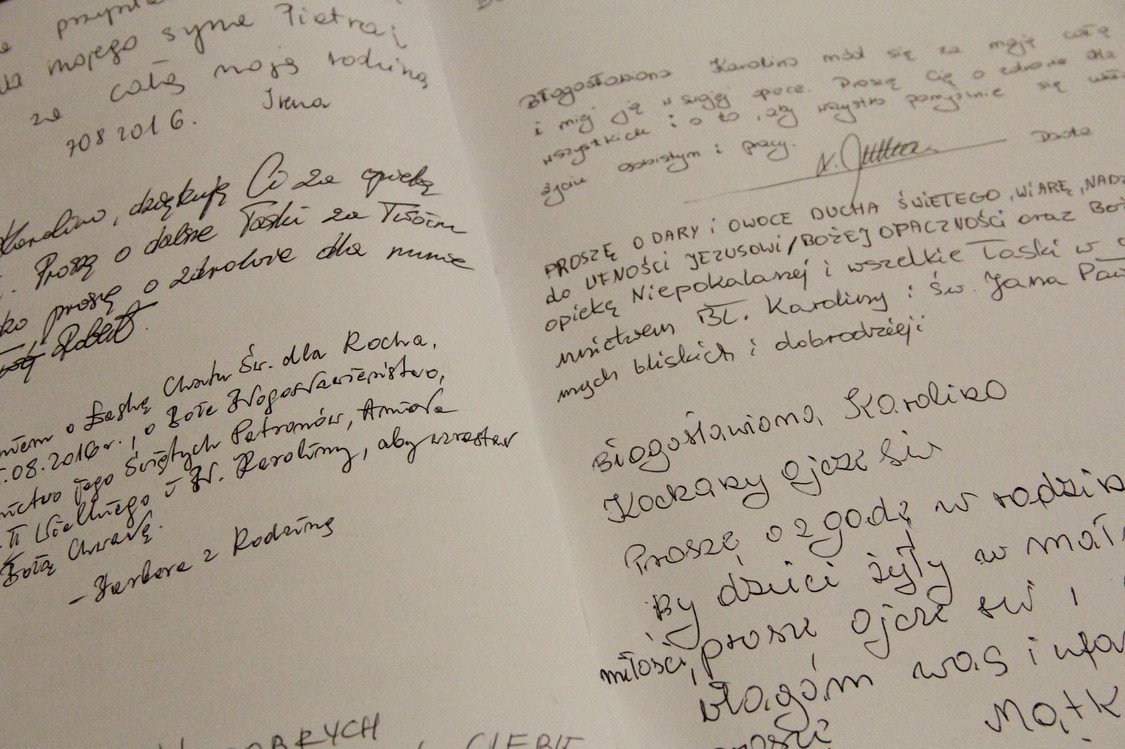 mojego syna Piotra i
za całą moją rodzinę
Irena
7082016.
Karolino, dziękuję Ci za opiekę
. Proszę o dalsze Łaski za Twoim
proszę o zdrowie dla mnie
Robert
o Łaskę Chrztu Św. dla Rocha,
.08.2016r., o Boże Błogosławieństwo,
jego Świętych Patronów, Anioła
II Wielkiego i Bł. Karoliny, aby wzrastał
Bożą Chwałę.
- Barbara z Rodziną
DOBRYCH
CIEBIE
Błogosławiona Karolino mód się za moją całą
i miej ją w swojej opiece. Proszę Cię o zdrowie dla
wszystkich i o to, aby wszystko pomyślnie się
życiu osobistym i pracy.
PROSZĘ O DARY i OWOCE DUCHA ŚWIĘTEGO, WIARĘ,
do UFNOŚCI JEZUSOWI/BOŻEJ OPACZNOŚCI oraz
opiekę Niepokalanej i wszelkie Łaski w
nnictwem BŁ. Karoliny i Św. Jana
mych bliskich i dobrodzieji
Błogosławiona Karolino
Kochany Ojcze Św
Proszę o zgodę w rodzin
By dzieci żyły w
miłości, prosze Ojcze św i
błagam was i
Matk